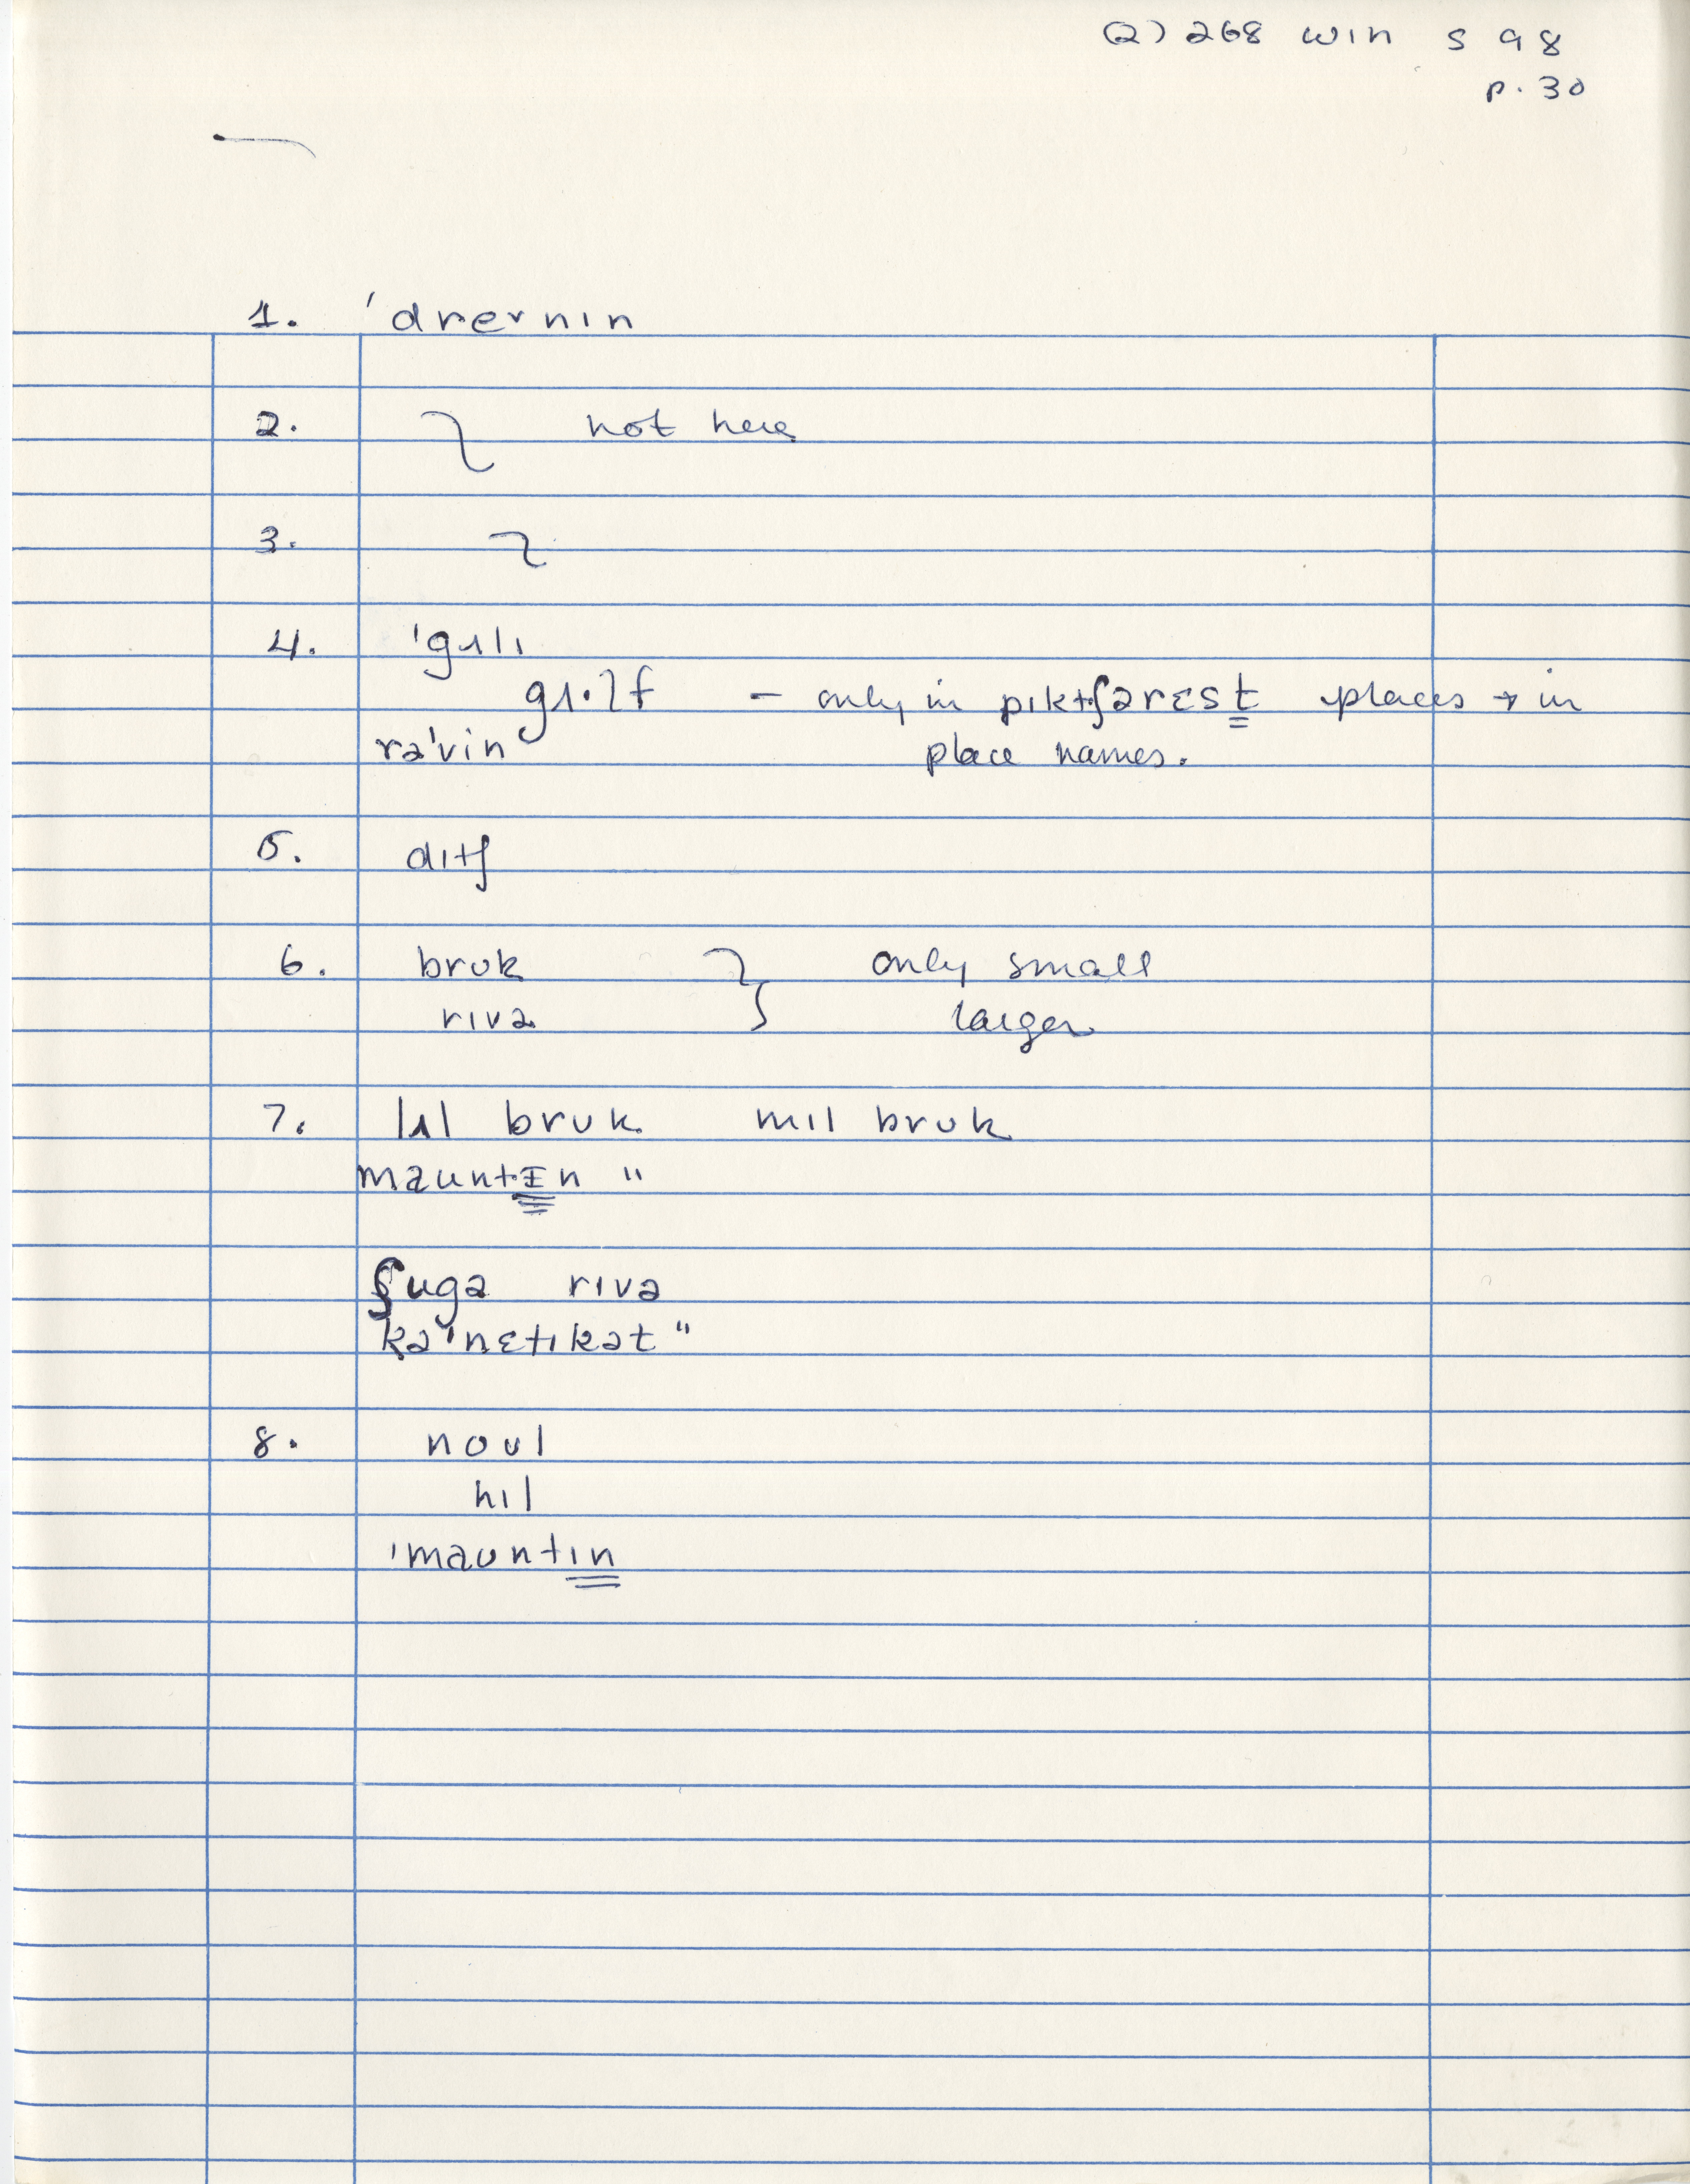 (2) 268 win s 98
p. 30
1. 'dreɪnɪn
2. not here
3.
4. 'gʌlɪ
gʌ·lf – only in pɪktʃərɛst places → in
rə'vin place names.
5. dɪtʃ
6. brʊk only small
rɪvə larger
7. lɪl brʊk mɪl brʊk
maʊntɪn "
ʃugə rɪvə
kə'nɛtɪkət "
8. noʊl
hɪl
'maʊntɪn